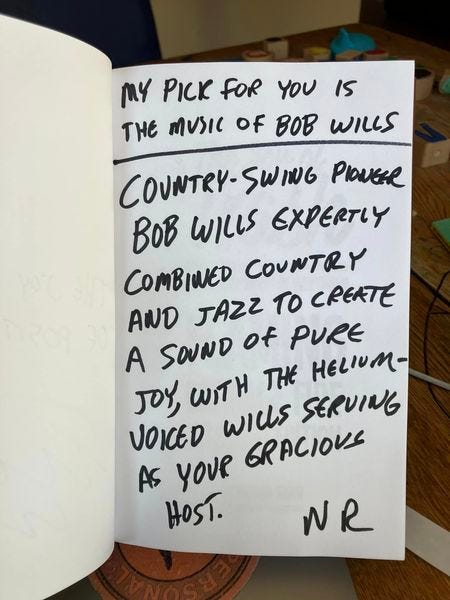 MY PICK FOR YOU IS
THE MUSIC OF BOB WILLS
COUNTRY-SWING PIONEER
BOB WILLS EXPERTLY
COMBINED COUNTRY
AND JAZZ TO CREATE
A SOUND OF PURE
JOY, WITH THE HELIUM-
VOICED WILLS SERVING
AS YOUR GRACIOUS
HOST.
NR
PERSONAL